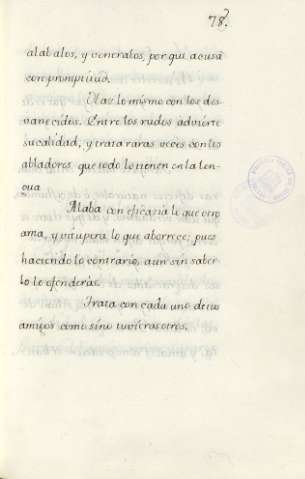 78.
alabalos, y veneralos, por que acusa
con promptitud.
Haz lo mismo con los des
vanecidos. Entre los rudos advierte
su calidad, y trata raras veces con los
abladores, que todo lo tienen en la len
gua
Alaba con eficacia lo que otro
ama, y vitupera lo que aborrece; pues
haciendo lo contrario, aun sin saber
lo le ofenderàs.
Trata con cada uno de tus
amigos como sino tuvieras otros.